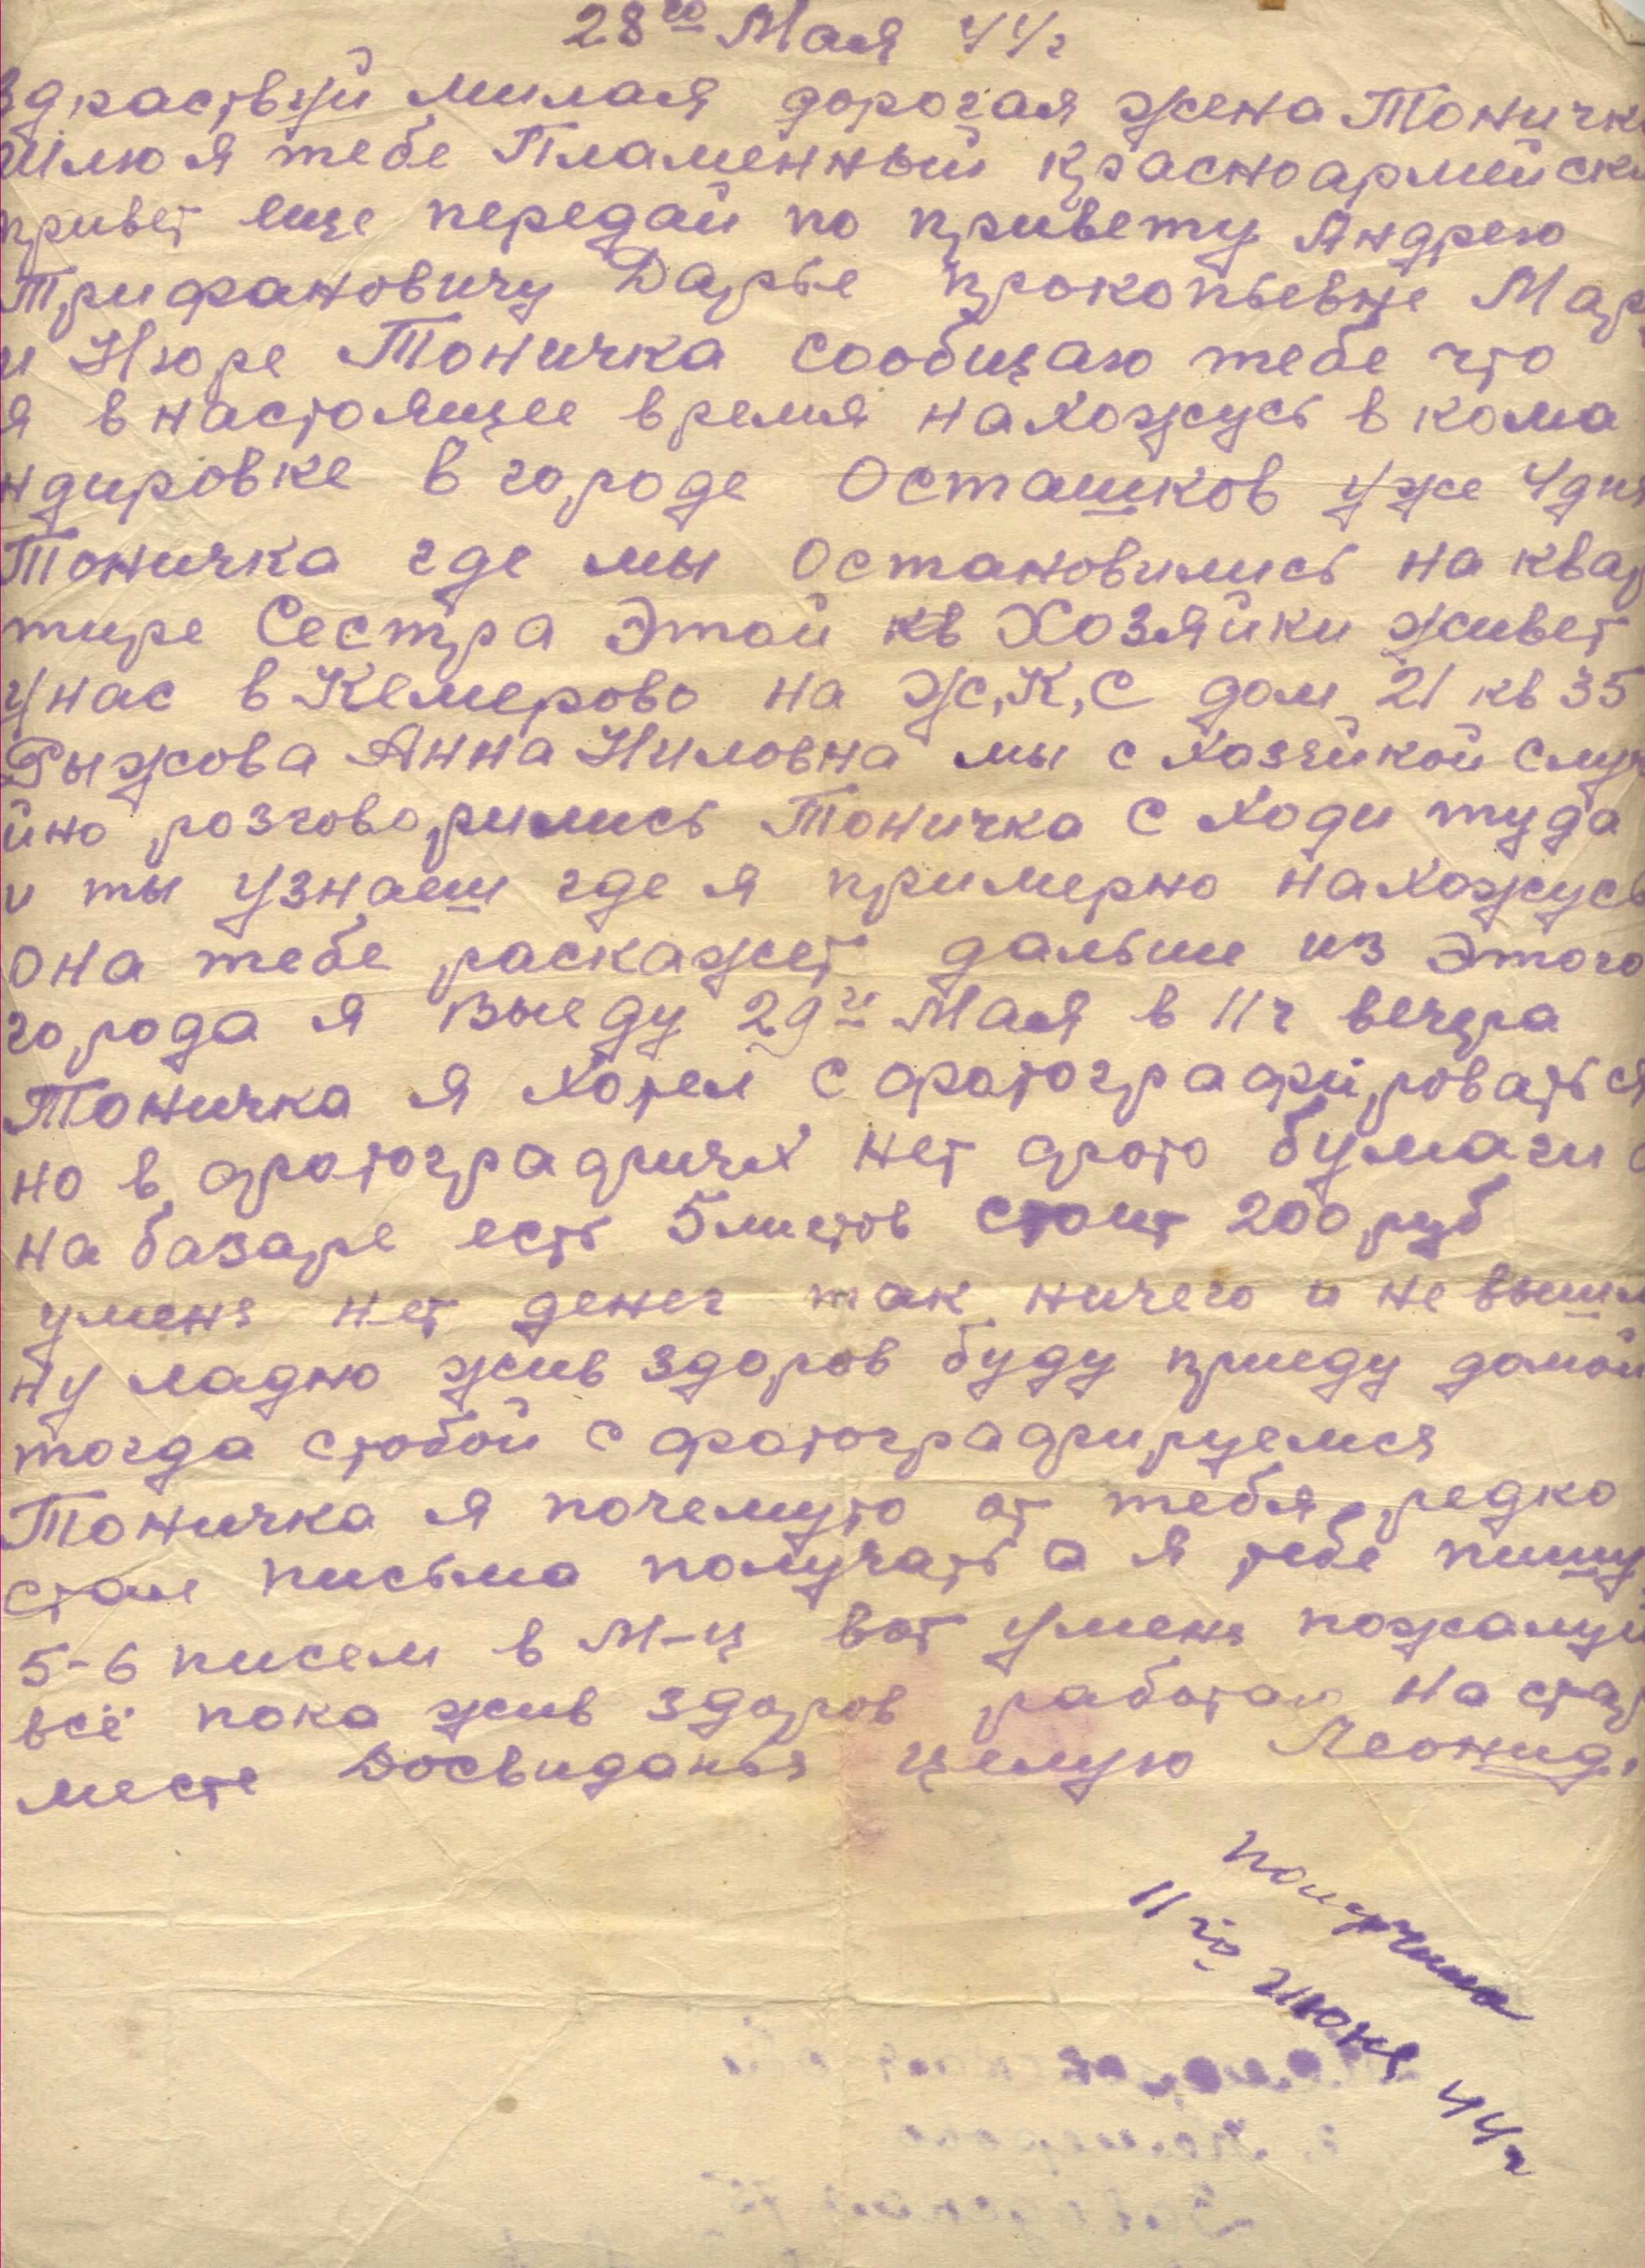 28го Мая 44г
Здраствуй милая дорогая жена Тоничка
Шлю я тебе Пламенный красноармейски
привет еще передай по привету Андрею
Трифановичу Дарье прокопьевне Мар
и Нюре Тоничка сообщаю тебе что
я в настоящее время нахожусь в кома
ндировке в городе Осташков уже 4 дня
Тоничка где мы Остановились на квар
тире Сестра Этой кв Хозяйки живет
у нас в Кемерово на Ж,К,С дом 21 кв 35
Рыжова Анна Ниловна мы с хозяйкой Случ
йно розговорились Тоничка Сходи туда
и ты узнаеш где я примерно нахожусь
Она тебе раскажет дальше из Этого
города я выеду 29го Мая в 11ч вечера
Тоничка я хотел сфотографироваться
но в фотографиях нет фото бумаги а
на базаре есть 5 листов стоит 200 руб
у меня нет денег так ничего и не вышл
ну ладно жив здоров буду приеду домой
тогда стобой сфотографируемся
Тоничка я почемуто от тебя редко
стал письма получать а я тебе пишу
5-6 писем в м-ц вот у меня пожалуй
всё пока жив здоров работаю на стар
месте Досвиданья целую Леонид.
Получила
11го июня 44г